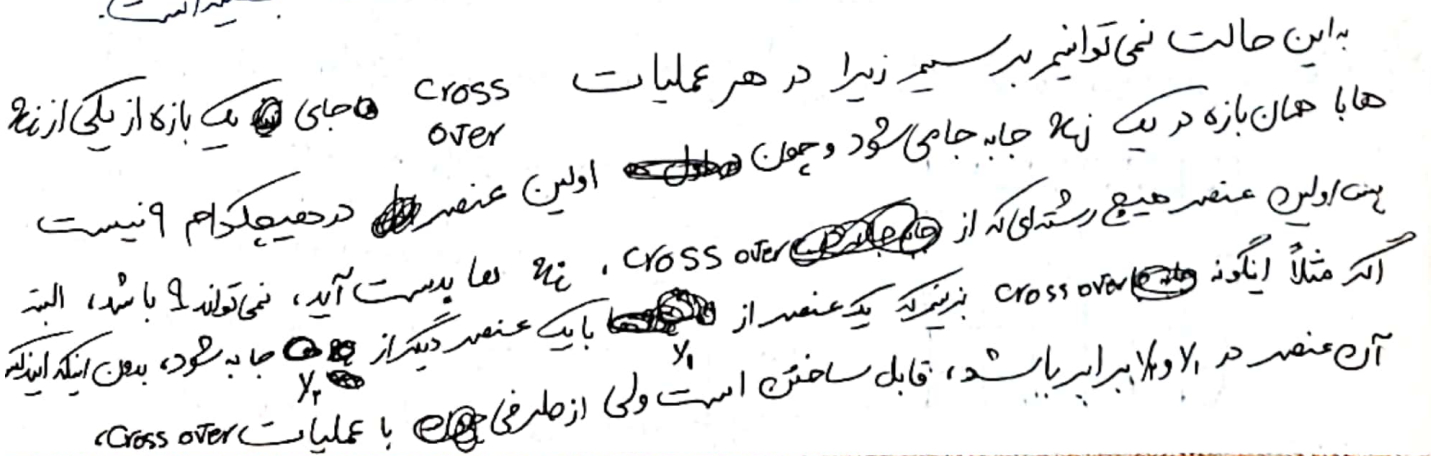 به این حالت نمی‌توانیم برسیم زیرا در هر عملیات cross over جای یک بازه از یکی از x ها
ها با همان بازه در یک x جابه جا می‌شود و چون اولین عنصر در هیچکدام ۹ نیست
پس اولین عنصر هیچ رشته‌ای که از cross over، x ها بدست آید، نمی‌تواند ۹ باشد، البته
اگر مثلاً اینگونه cross over بزنیم که یک عنصر از y₁ با یک عنصر دیگر از y₂ جابه شود، بدون اینکه
آن عنصر در y₁ و y₂ برابر باشد، قابل ساختن است ولی از طرفی با عملیات cross over،